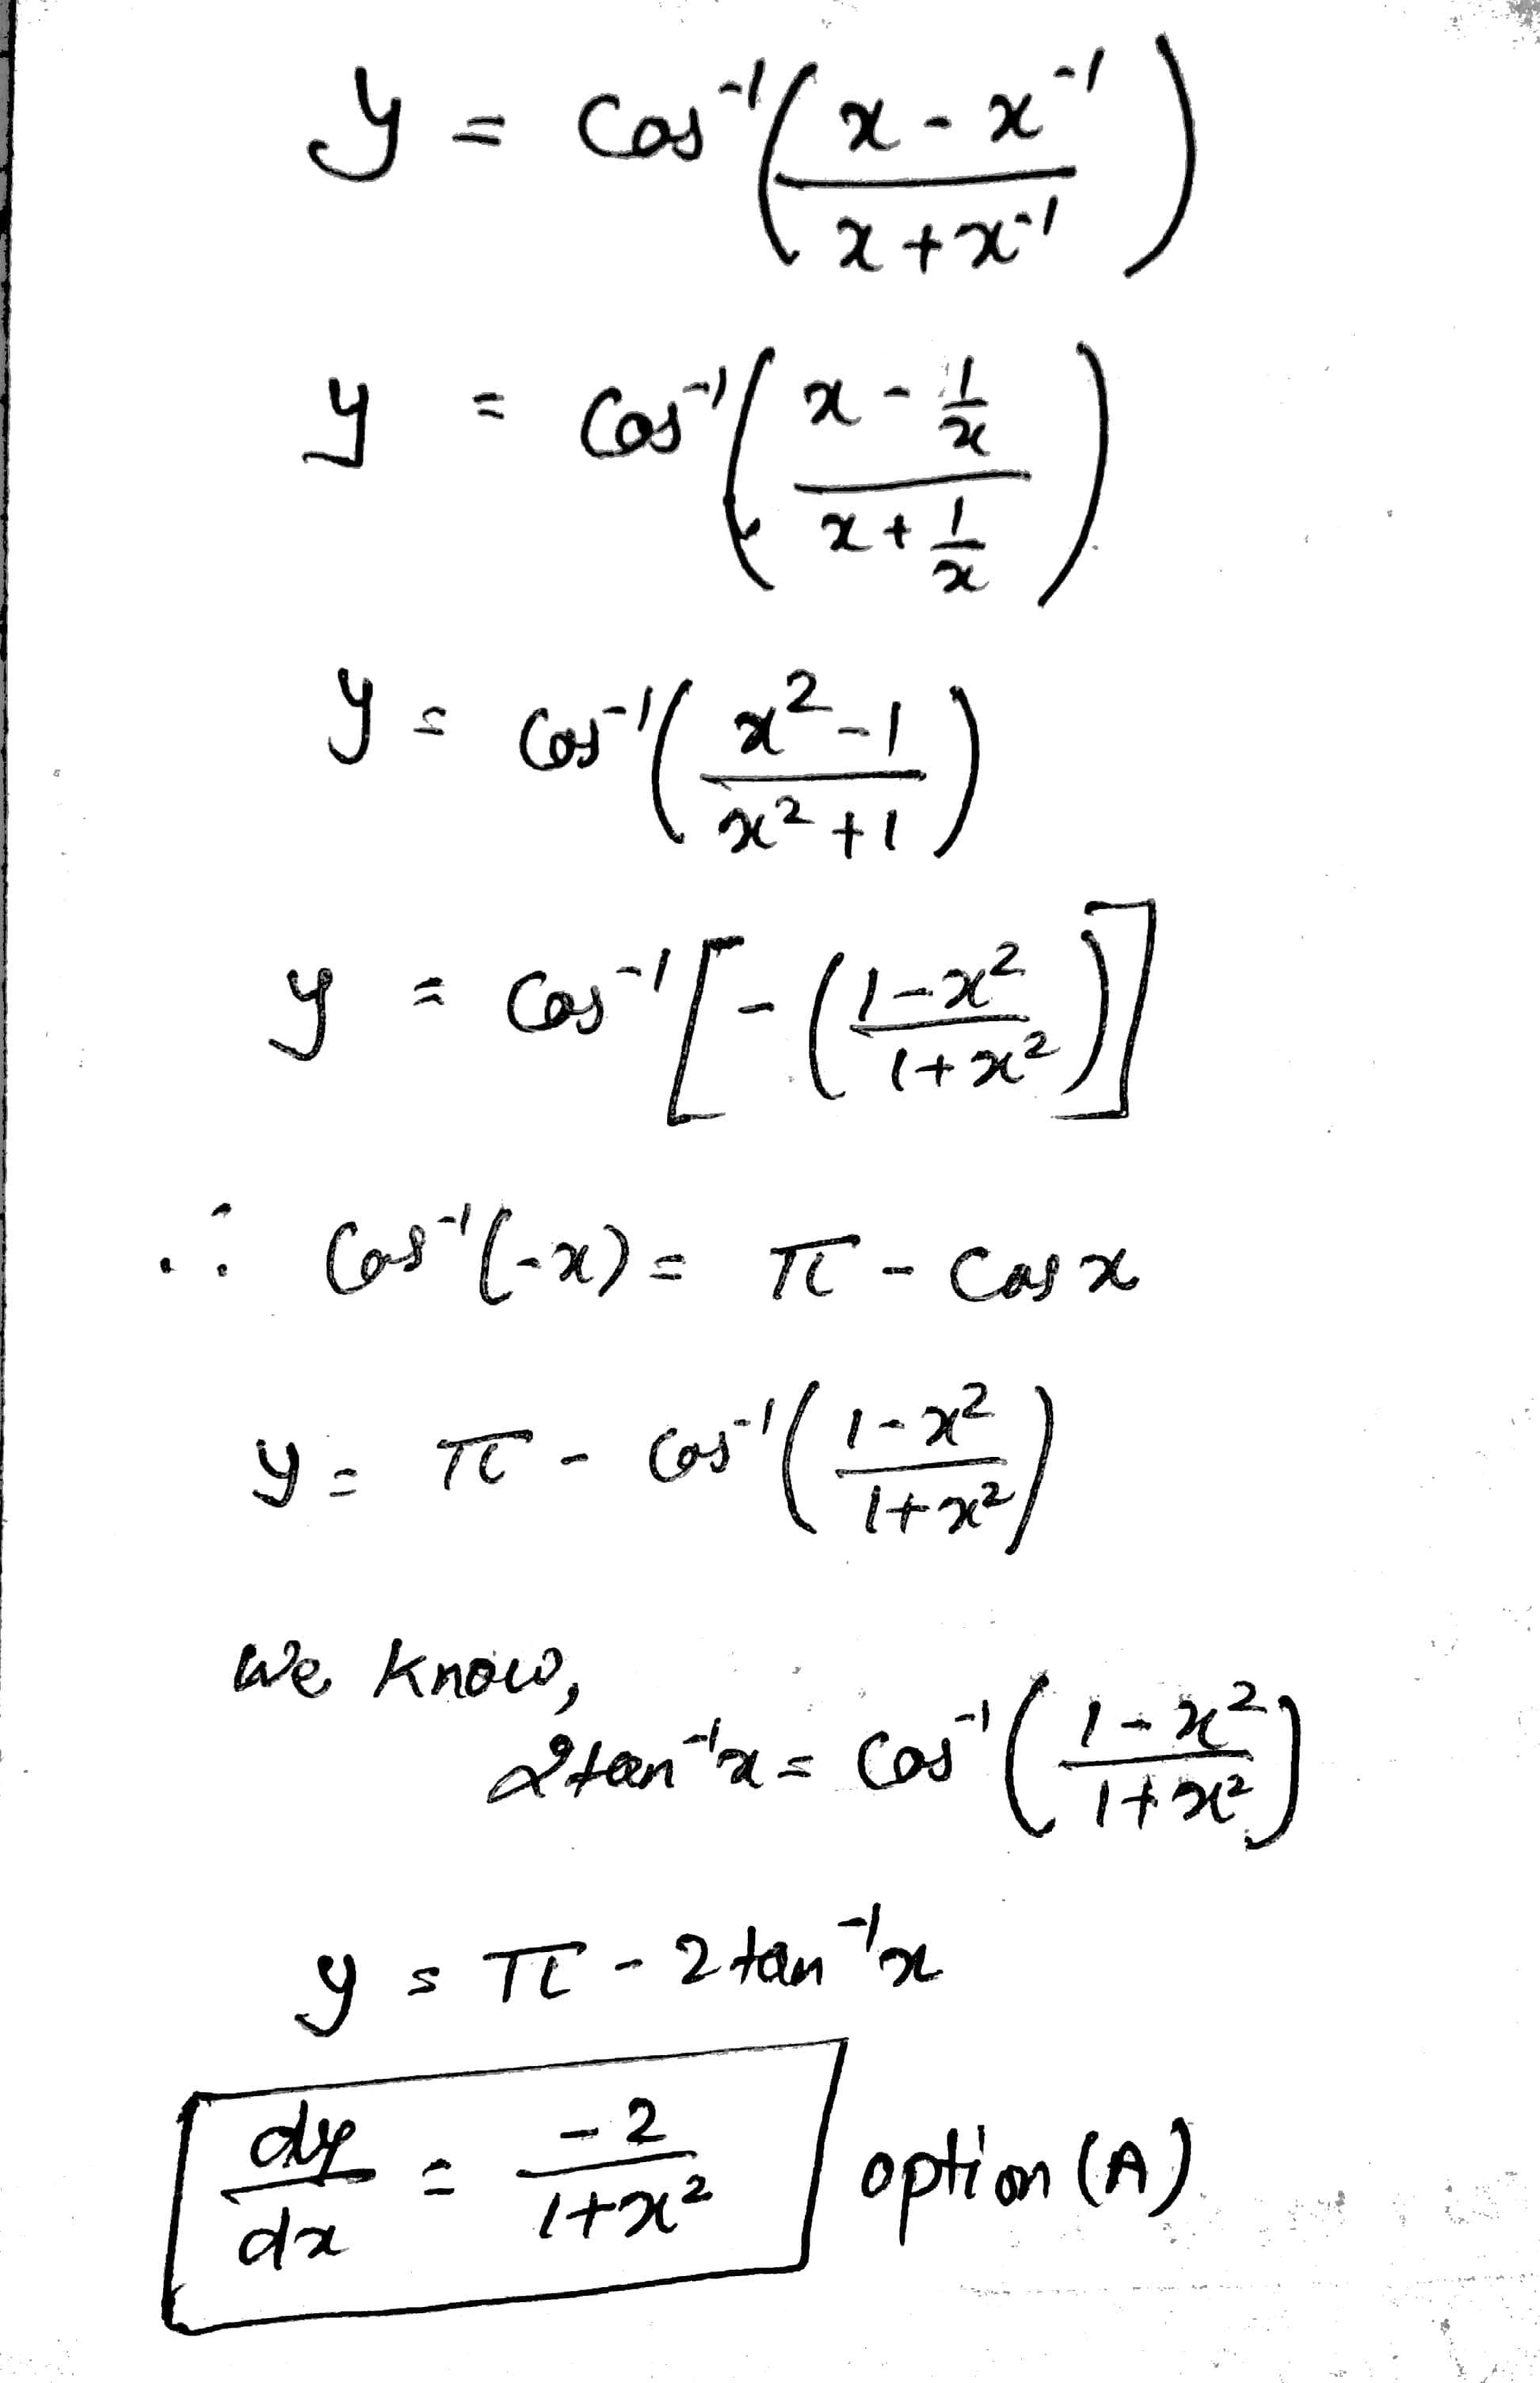 y = cos⁻¹( (x - x⁻¹) / (x + x⁻¹) )
y = cos⁻¹( (x - 1/x) / (x + 1/x) )
y = cos⁻¹( (x² - 1) / (x² + 1) )
y = cos⁻¹[ -( (1 - x²) / (1 + x²) ) ]
∴ cos⁻¹(-x) = π - cos x
y = π - cos⁻¹( (1 - x²) / (1 + x²) )
we know,
2tan⁻¹x = cos⁻¹( (1 - x²) / (1 + x²) )
y = π - 2tan⁻¹x
dy/dx = -2 / (1 + x²) option (A)